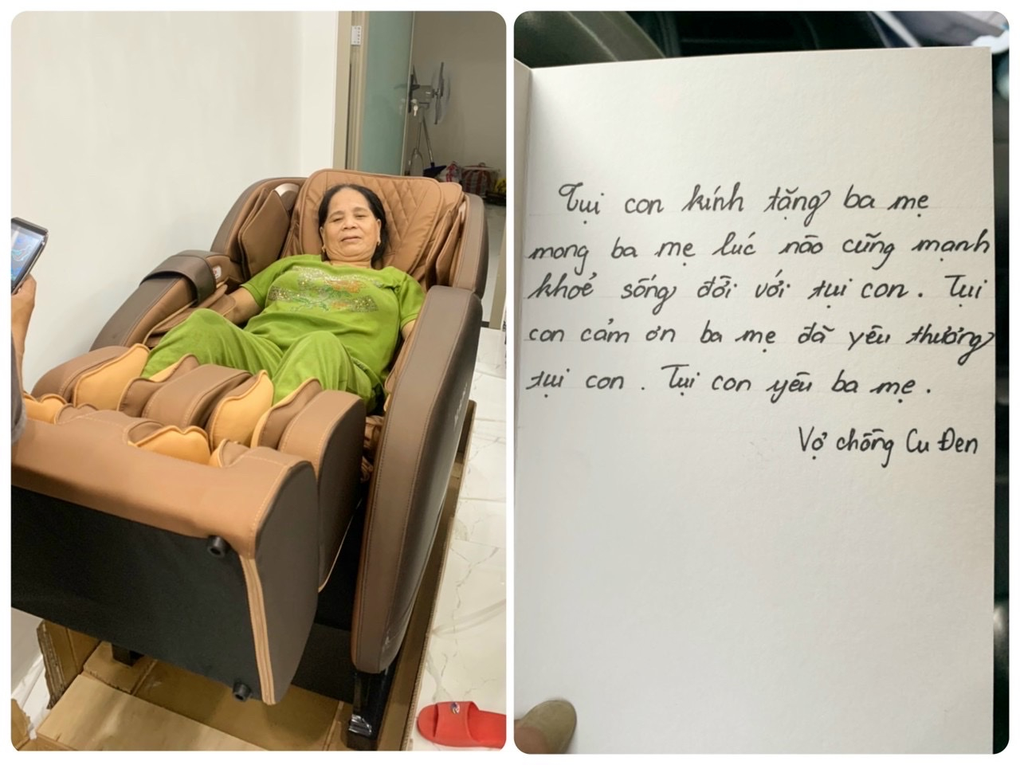 Tụi con kính tặng ba mẹ
mong ba mẹ lúc nào cũng mạnh
khoẻ sống đời với tụi con. Tụi
con cảm ơn ba mẹ đã yêu thương
tụi con. Tụi con yêu ba mẹ.
Vợ chồng Cu Đen